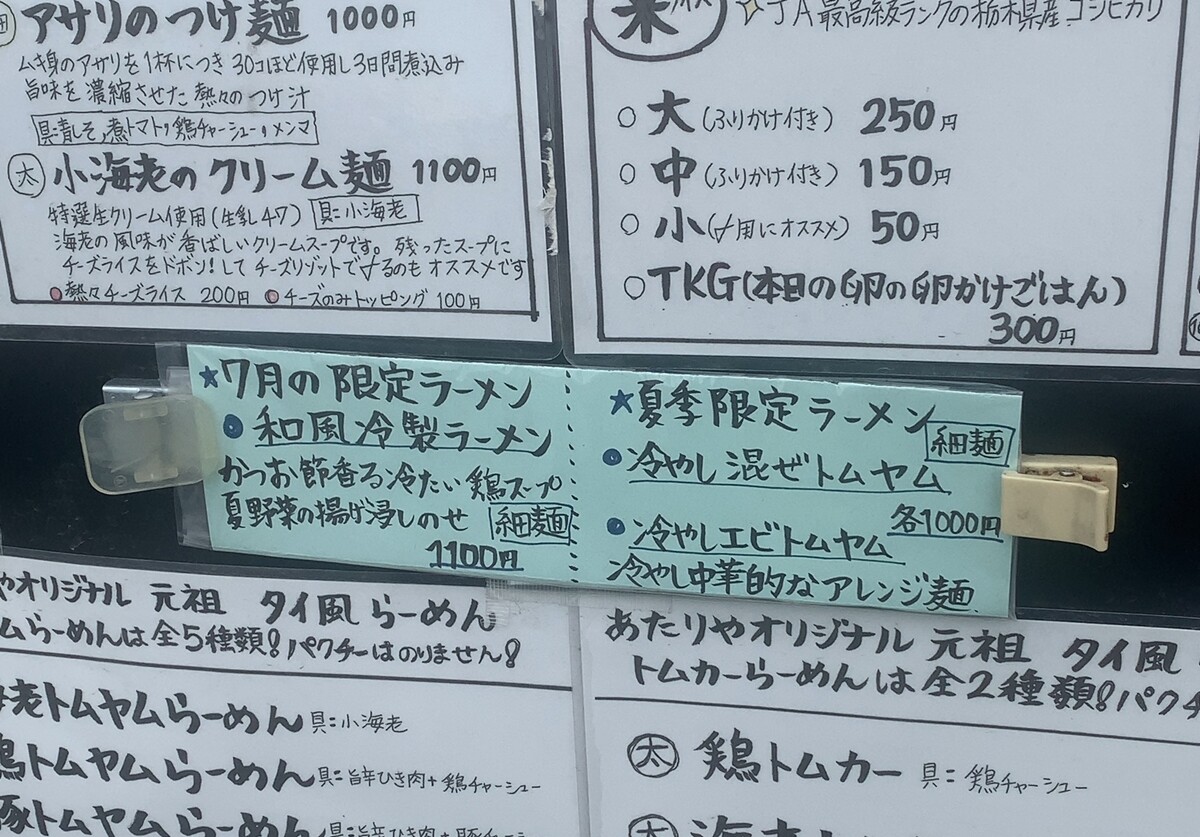 アサリのつけ麺 1000円
ムキ身のアサリを1杯につき30コほど使用し3日間煮込み
旨味を濃縮させた熱々のつけ汁
具:青しそ,煮トマト,鶏チャーシュー,メンマ
太 小海老のクリーム麺 1100円
特選生クリーム使用(生乳47) 具:小海老
海老の風味が香ばしいクリームスープです。残ったスープに
チーズライスをドボン!してチーズリゾットで〆るのもオススメです
熱々チーズライス 200円 チーズのみトッピング 100円
米 ライス JA最高級ランクの栃木県産コシヒカリ
○ 大(ふりかけ付き) 250円
○ 中(ふりかけ付き) 150円
○ 小(〆用にオススメ) 50円
○ TKG(本日の卵の卵かけごはん)
300円
★7月の限定ラーメン
● 和風冷製ラーメン
かつお節香る冷たい鶏スープ
夏野菜の揚げ浸しのせ 細麺
1100円
★夏季限定ラーメン
細麺
● 冷やし混ぜトムヤム
各1000円
● 冷やしエビトムヤム
冷やし中華的なアレンジ麺
やオリジナル 元祖 タイ風らーめん
ムらーめんは全5種類!パクチーはのりません!
老トムヤムらーめん 具:小海老
鶏トムヤムらーめん 具:旨辛ひき肉+鶏チャーシュー
豚トムヤムらーめん 具:旨辛ひき肉+豚チャー
あたりやオリジナル 元祖 タイ風
トムカーらーめんは全2種類!パクチ
太 鶏トムカー 具:鶏チャーシュー
太 海老